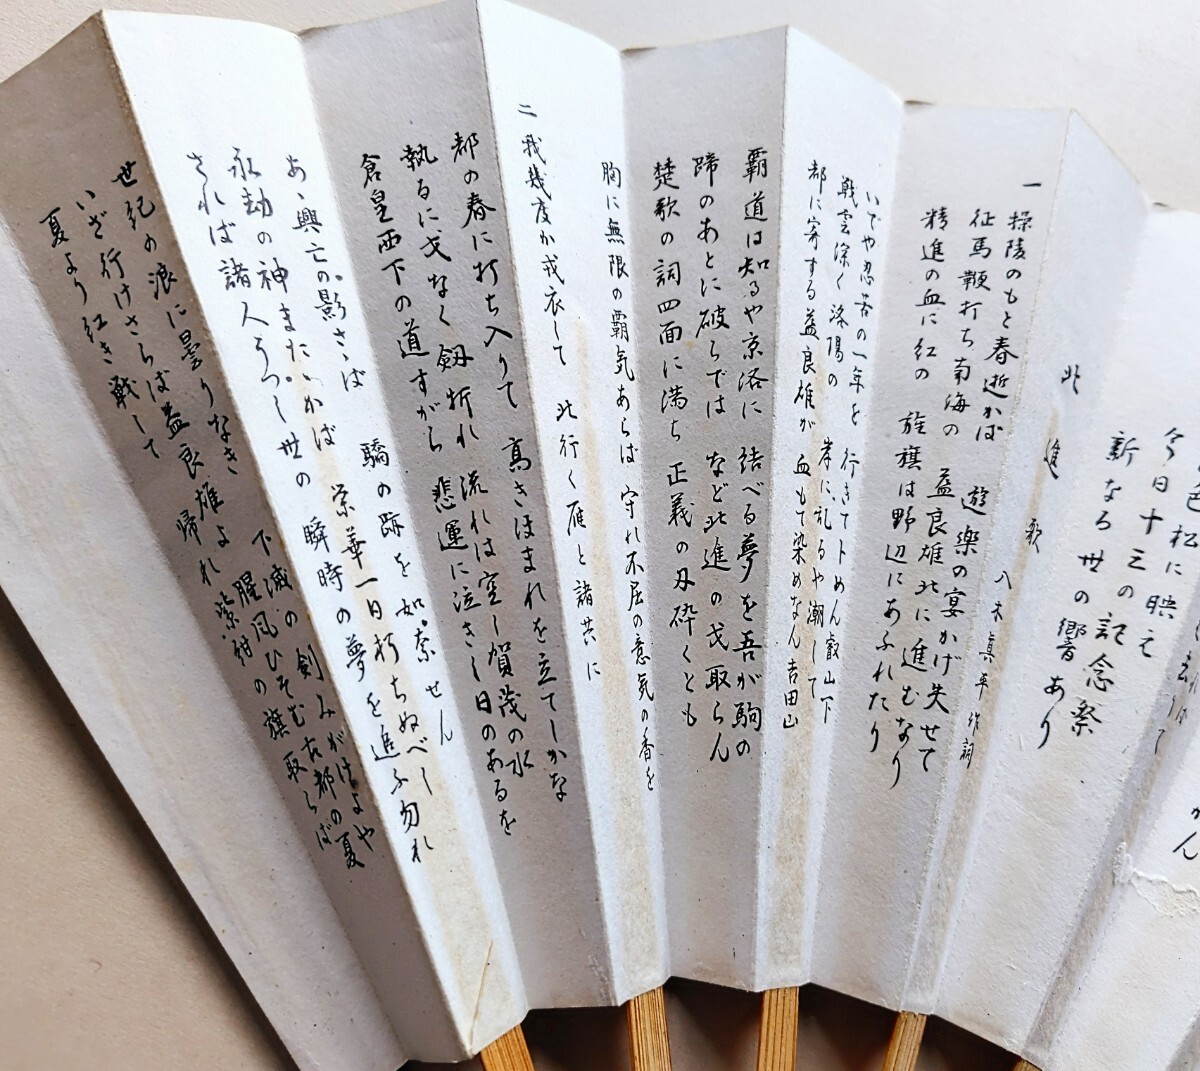 色 松に映え
今日十三の記念祭
新なる世の響あり
北進歌 八木真平作詞
一 操陵のもと春逝かば 遊楽の宴かげ失せて
征馬鞭打ち南海の 益良雄北に進むなり
精進の血に紅の 旌旗は野辺にあふれたり
いでや忍苦の一年を 行きてトめん叡山下
戦雲深く洛陽の 岸に乱るや潮して
都に寄する益良雄が 血もて染めなん吉田山
覇道は知るや京洛に 結べる夢を吾が駒の
蹄のあとに破らでは など北進の戈取らん
楚歌の詞四面に満ち 正義の刃砕くとも
胸に無限の覇気あらば 守れ不屈の意気の香を
二 我幾度か戎衣して 北行く雁と諸共に
都の春に打ち入りて 高きほまれを立てしかな
執るに戈なく剱折れ 流れは空し賀茂の水
倉皇西下の道すがら 悲運に泣きし日のあるを
あゝ興亡の影さゝば 驕の跡を如奈せん
永劫の神またゝかば 栄華一日朽ちぬべし
されば諸人うつし世の 瞬時の夢を追ふ勿れ
世紀の浪に曇りなき 下滅の剣みがけよや
いざ行けさらば益良雄よ 腥風ひそむ古都の夏
夏より紅き戦して 帰れ紫紺の旗取らば